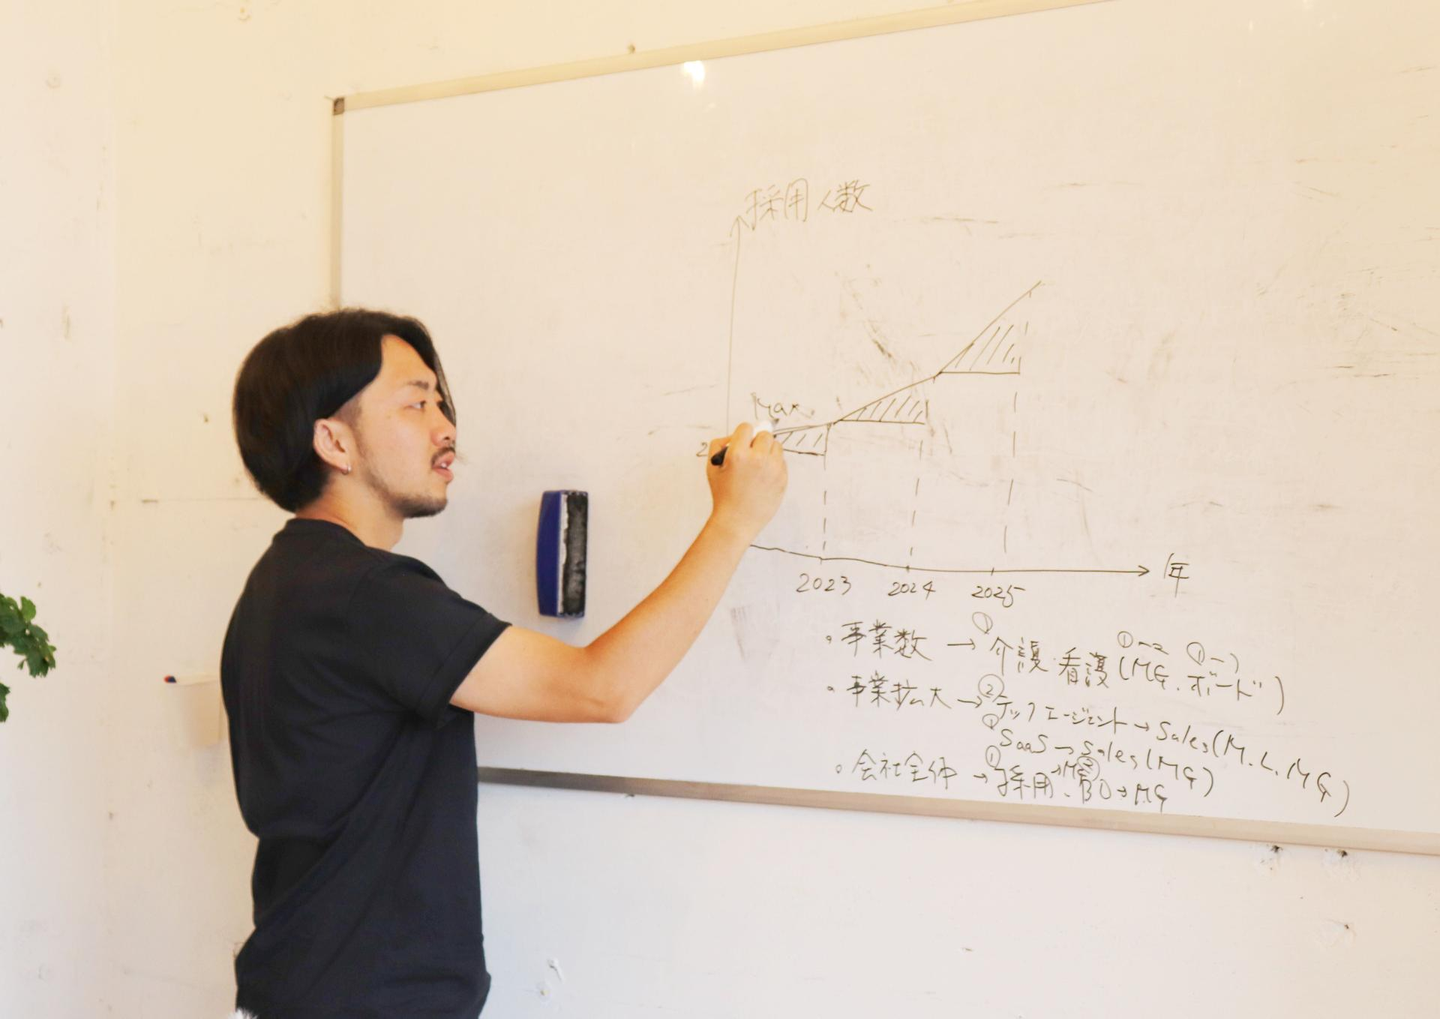 採用人数
Max
2
年
2023 2024 2025
・事業数 → ① 介護・看護 (MG、ボード)
・事業拡大 → ② テックエージェント → Sales (M.L、MG)
① SaaS → Sales (MG)
・会社全体 → ① 採用 → MG